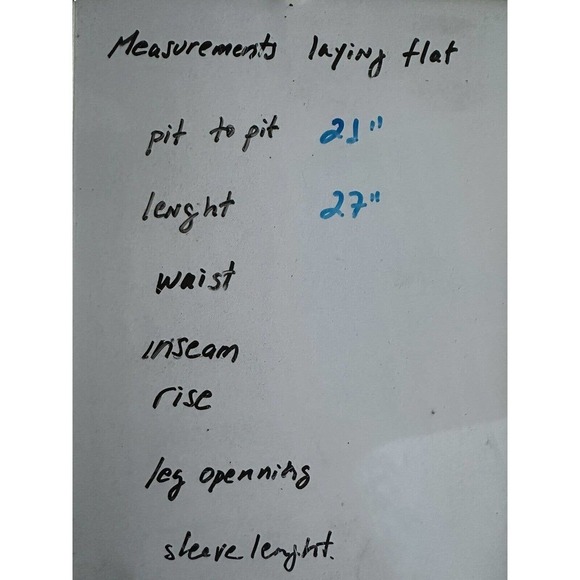 Measurements laying flat
pit to pit 21"
lenght 27"
waist
inseam
rise
leg openning
sleeve lenght.